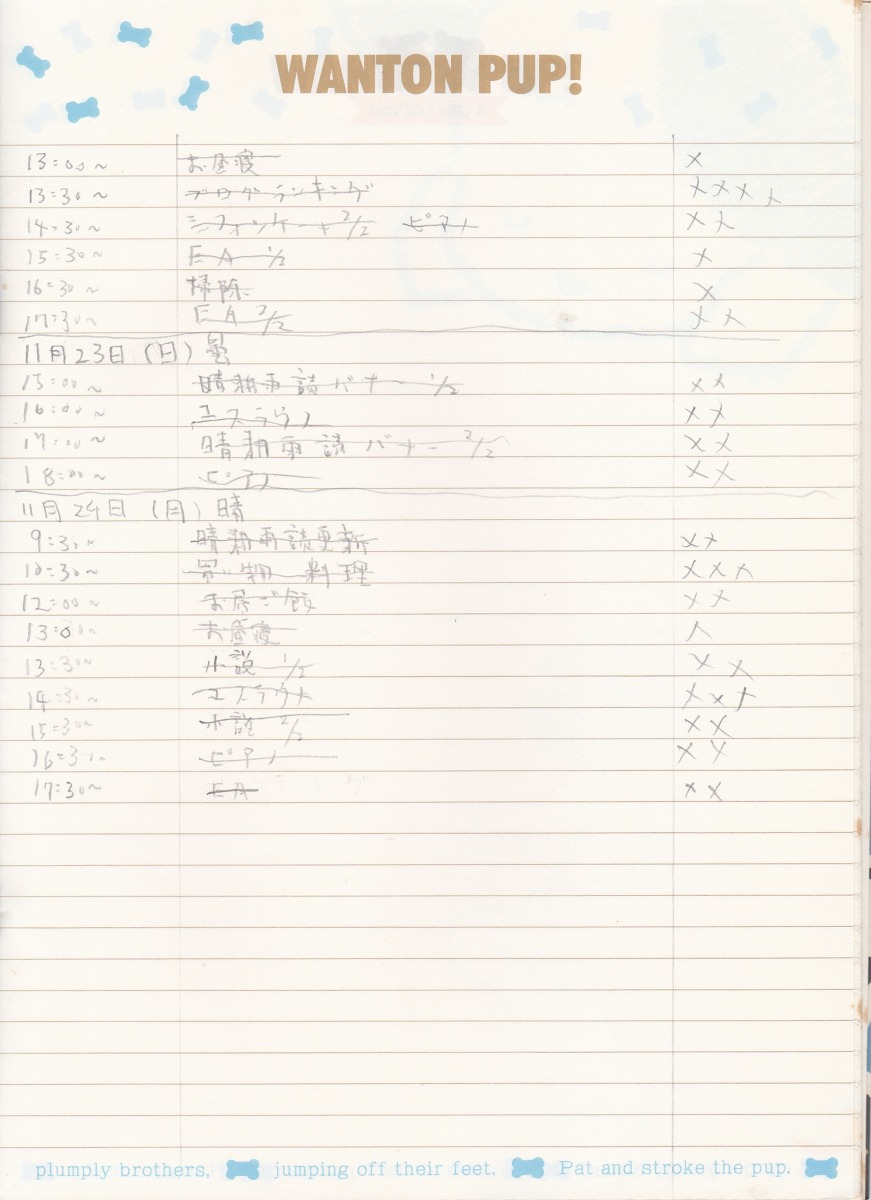 WANTON PUP!
13:00~ お昼寝 ×
13:30~ ブログランキング ××××
14:30~ シフォンケーキ 2/2 ピアノ ××
15:30~ EA 1/2 ×
16:30~ 掃除 ×
17:30~ EA 2/2 ××
11月23日(日)曇
15:00~ 晴耕雨読バナー 1/2 ××
16:00~ ××
17:00~ 晴耕雨読バナー 2/2 ××
18:00~ ピアノ ××
11月24日(月)晴
9:30~ 晴耕雨読更新 ××
10:30~ 買い物 料理 ×××
12:00~ お昼ご飯 ××
13:00~ お昼寝 ×
13:30~ 小説 1/2 ××
14:30~ ×××
15:30~ 小説 2/2 ××
16:30~ ピアノ ××
17:30~ EA ××
plumply brothers, jumping off their feet. Pat and stroke the pup.